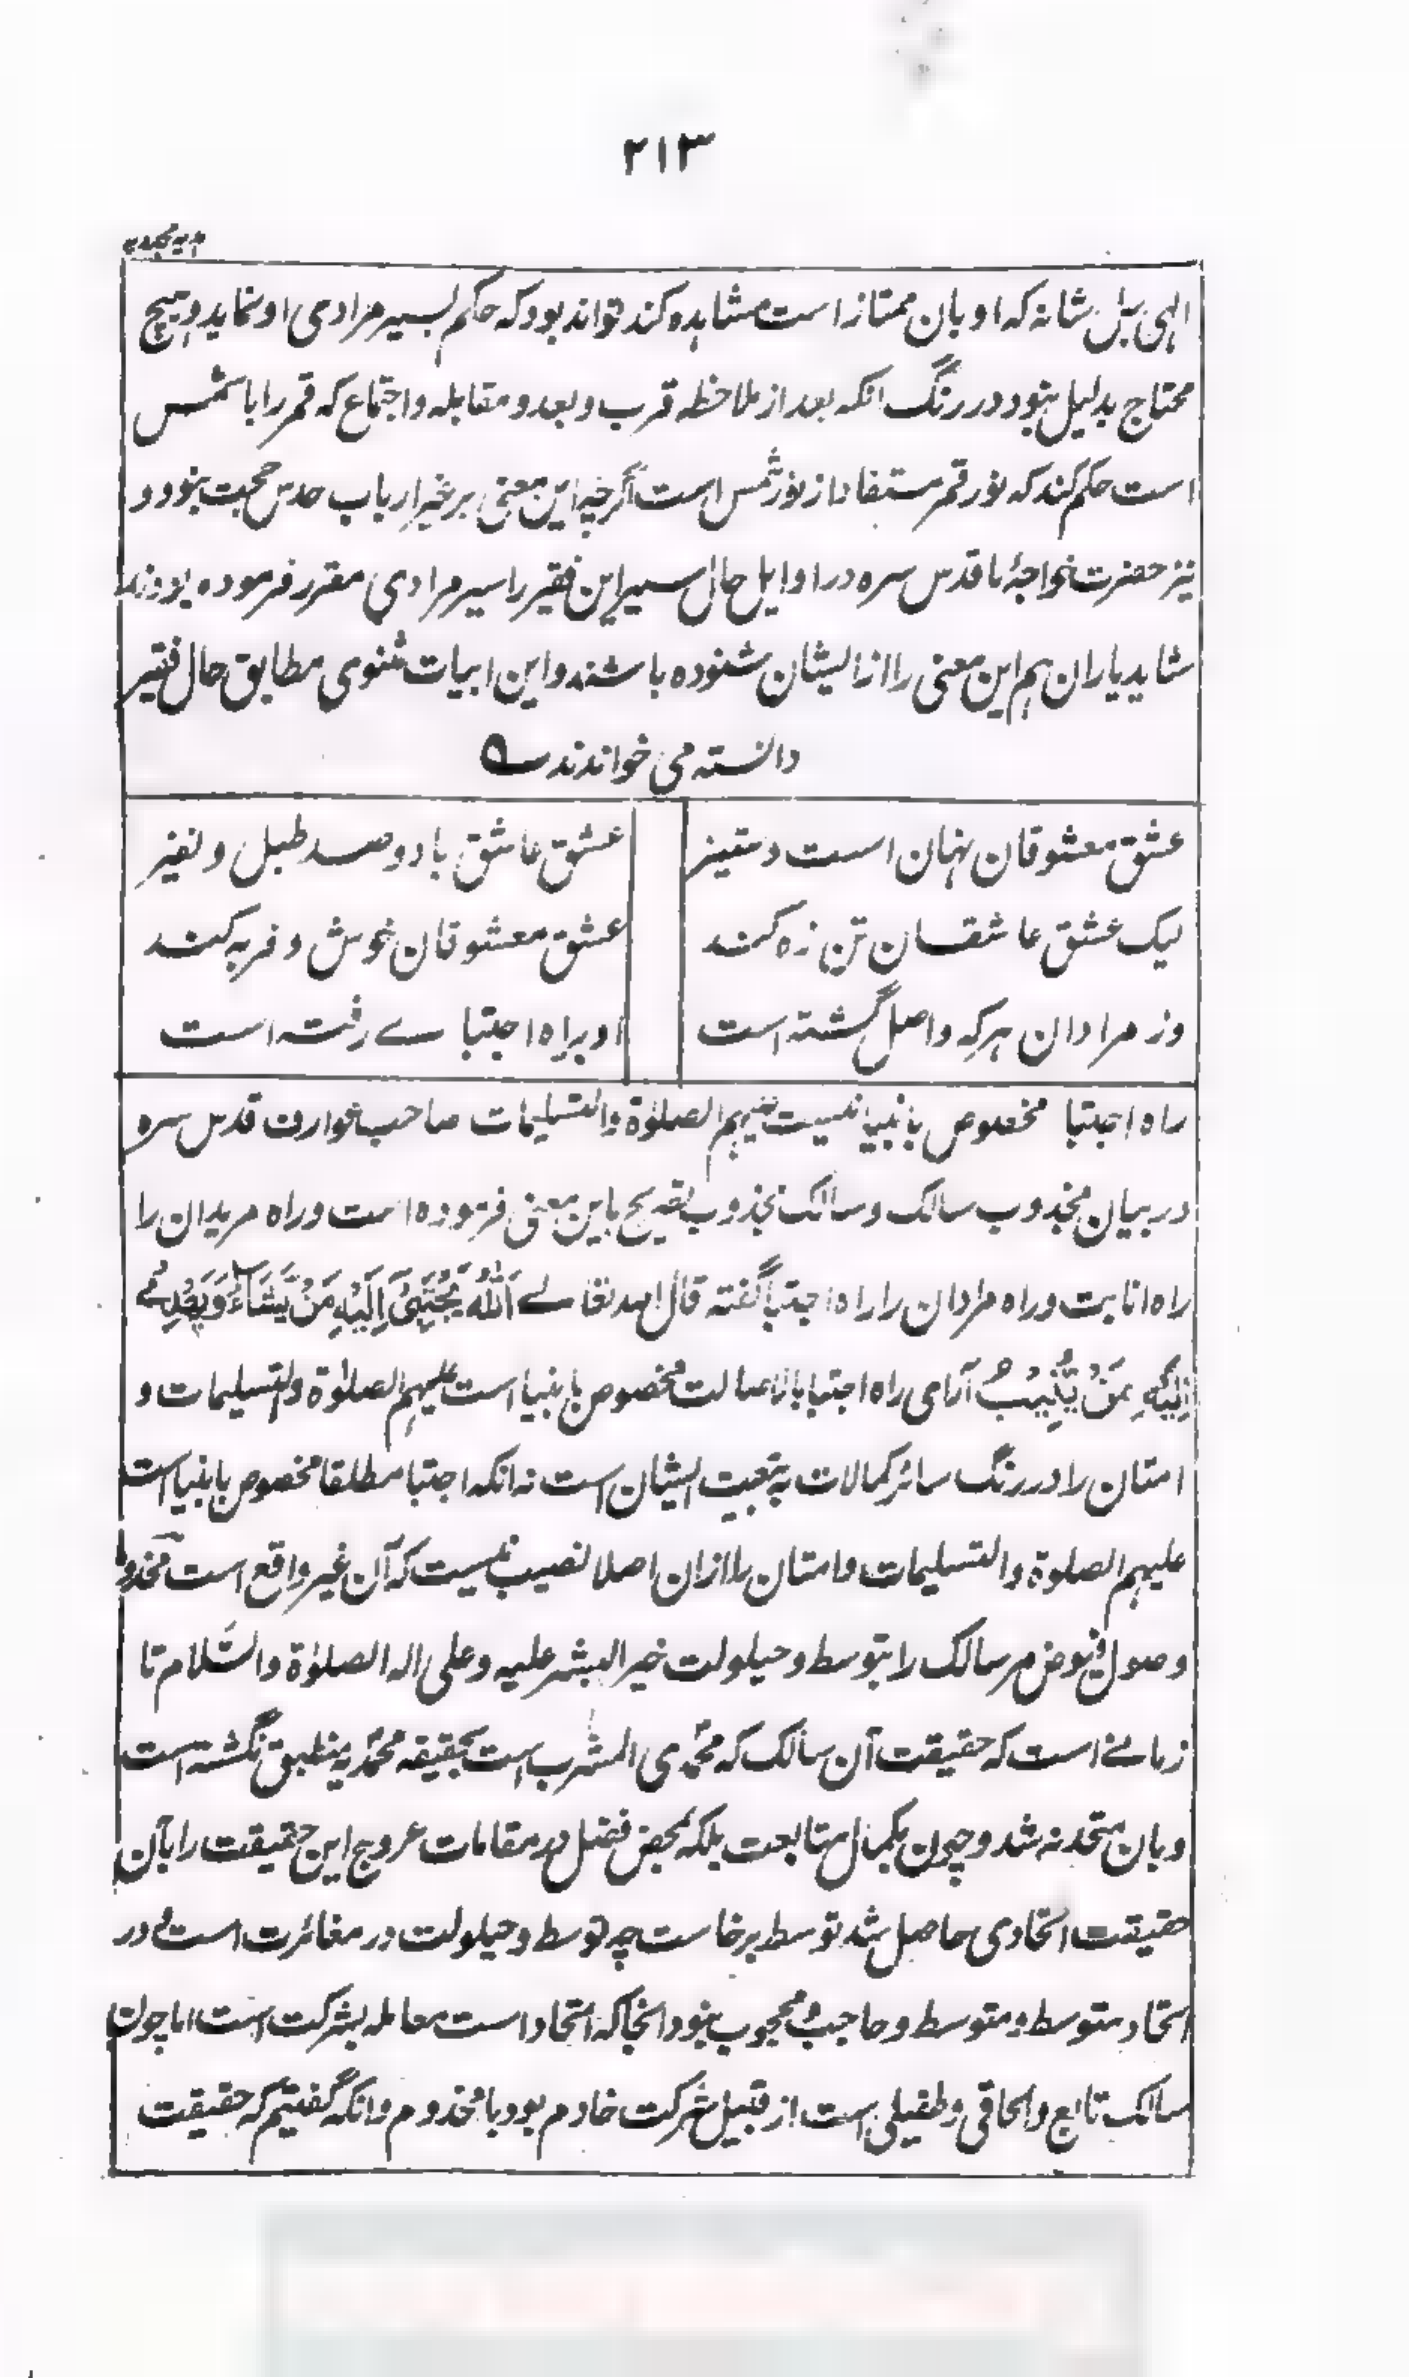 ۲۱۳
الهی جل شانه که او بان ممتاز است مشاهده کند تواند بود که حکم بسیر مرادی او نماید و هیچ
محتاج بدلیل نبود در رنگ انکه بعد از ملاحظه قرب و بعد و مقابله و اجتماع که قمر را با شمس
است حکم کند که نور قمر مستفاد از نور شمس است اگرچه این معنی بر غیر ارباب حدس حجت نبود و
نیز حضرت خواجۀ ما قدس سره در اوایل حال سیر این فقیر را سیر مرادی مقرر فرموده بودند
شاید یاران هم این معنی را از ایشان شنوده باشند و این ابیات مثنوی مطابق حال فقیر
دانسته می خواندند
عشق معشوقان نهان است و ستیر
عشق عاشق با دو صد طبل و نفیر
لیک عشق عاشقان تن زه کند
عشق معشوقان خوش و فربه کند
وز مرادان هرکه واصل گشته است
او براه اجتبا سے رفته است
راه اجتبا مخصوص بانبیا نیست علیهم الصلوٰة والتسلیمات صاحب عوارف قدس سره
در بیان مجذوب سالک و سالک مجذوب تصریح باین معنی فرموده است و راه مریدان را
راه انابت و راه مرادان را راه اجتبا گفته قال الله تعالے اَللّٰهُ یَجْتَبِیْٓ اِلَیْهِ مَنْ یَّشَآءُ وَیَهْدِیْٓ
اِلَیْهِ مَنْ یُّنِیْبُ آرامی راه اجتبا بالاصالت مخصوص بانبیا است علیهم الصلوٰة والتسلیمات و
امتان را در رنگ سائر کمالات به تبعیت ایشان است نه انکه اجتبا مطلقا مخصوص بانبیا است
علیهم الصلوة والتسلیمات و امتان را ازان اصلا نصیب نیست که آن غیر واقع است مخدوما
وصول فیوض مر سالک را بتوسط و حیلولت خیر البشر علیه وعلی اله الصلوٰة والسَّلام تا
زمانے است که حقیقت آن سالک که محمدی المشرب است بحقیقه محمدیه منطبق نگشته است
و بان متحد نه شد و چون بکمال متابعت بلکه بمحض فضل در مقامات عروج این حقیقت را بآن
حقیقت اتحادی حاصل شد توسط برخاست چه توسط و حیلولت در مغائرت است و در
اتحاد متوسط و متوسط و حاجب و محجوب نبود انجا که اتحاد است معامله بشرکت است اما چون
سالک تابع و الحاقی و طفیلی است از قبیل شرکت خادم بود با مخدوم و انکه گفتیم که حقیقت